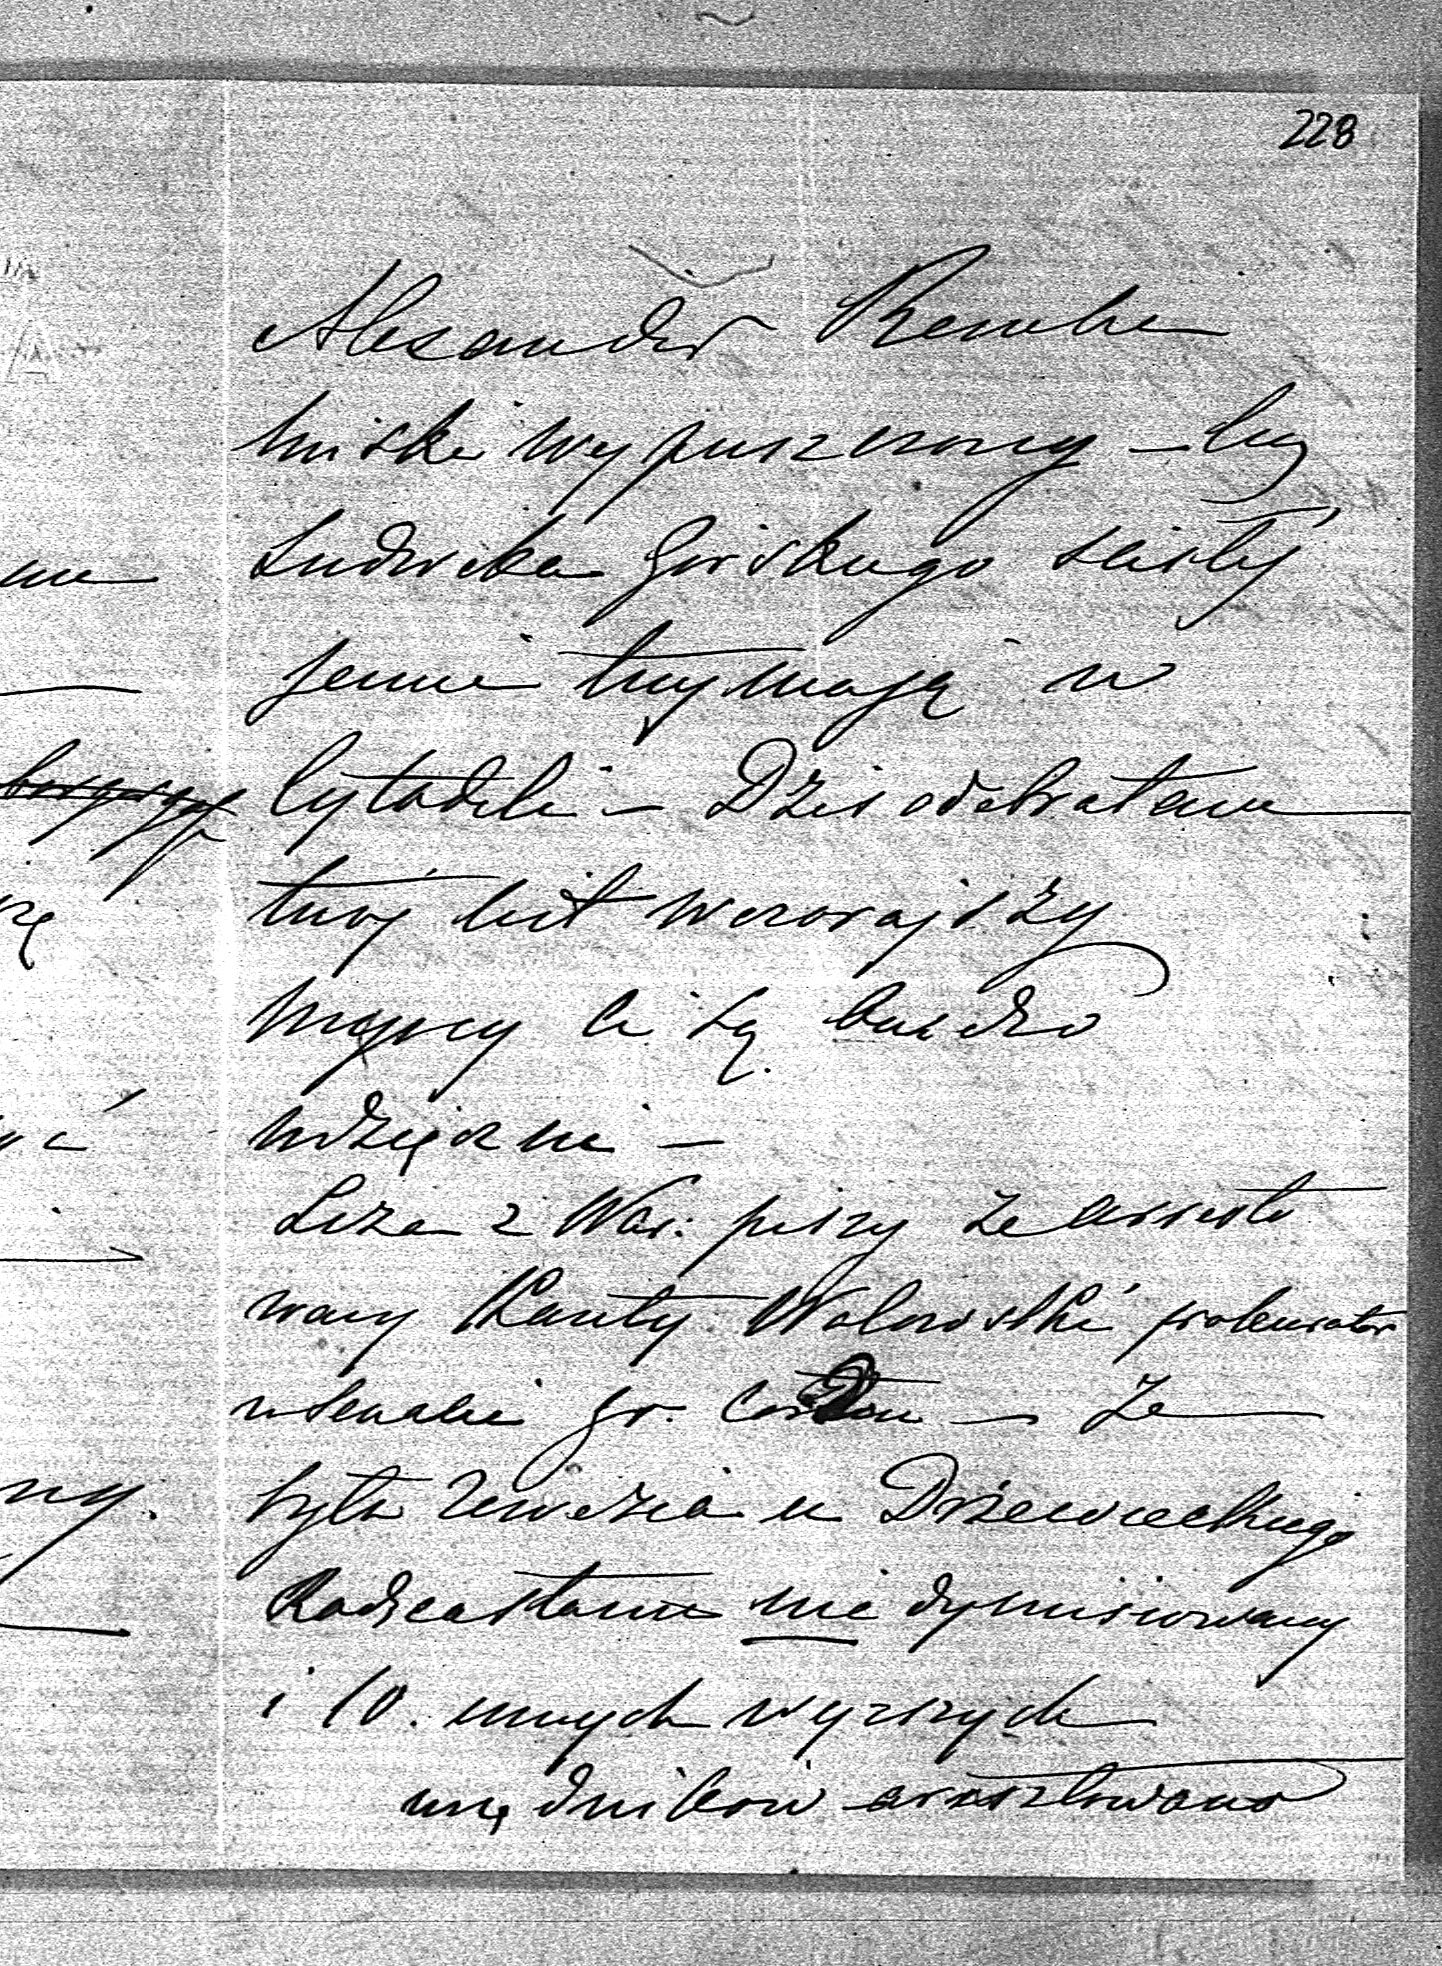 228
Alexander Rembie
liński wypuszczony — lecz
Ludwika Górskiego ściślej
jeszcze trzymają w
Cytadeli — Dziś odebrałam
twój list wczorajszy
wszyscy ci są bardzo
wdzięczni —
Liza z War: piszy że areszto
wany Kanty Wołowski prokurator
w Senacie że
była rewizia u Drzewieckiego
Radca stanu nie dymisiowany
i 10. innych wyższych
urzędników aresztowano